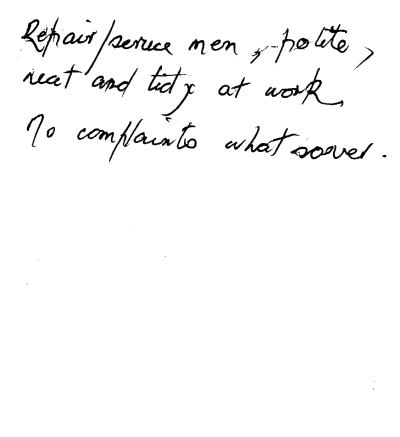 Repair/service men, polite,
neat and tidy at work,
No complaints what soever.